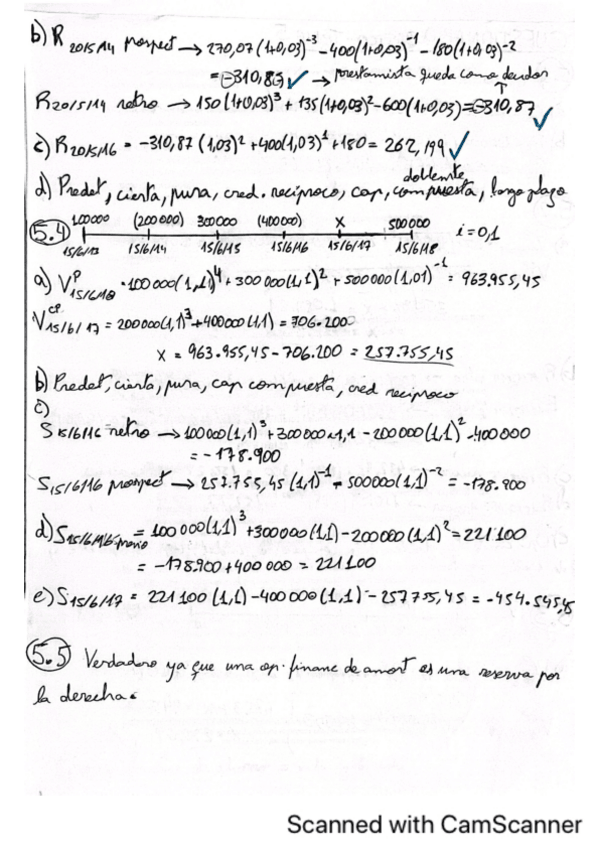 b) R 2015/14 prospect → 270,07 (1+0,03)⁻³ - 400(1+0,03)⁻¹ - 180(1+0,03)⁻²
= -310,87 ✓ → prestamista queda como deudor
R 2015/14 retro → 150 (1+0,03)³ + 135(1+0,03)² - 600(1+0,03) = -310,87 ✓
c) R 2015/16 = -310,87 (1,03)² + 400(1,03)¹ + 180 = 262,199 ✓
doblemte
d) Predet, cierta, pura, cred. reciproco, cap, compuesta, largo plazo
5.4 100000 (200000) 300000 (400000) X 500000 i=0,1
15/6/13 15/6/14 15/6/15 15/6/16 15/6/17 15/6/18
a) Vᴾ 15/6/18 = 100000(1,1)⁴ + 300000(1,1)² + 500000(1,01)⁻¹ = 963.955,45
Vᶜᴾ 15/6/17 = 200000(1,1)³ + 400000(1,1) = 706.200
X = 963.955,45 - 706.200 = 257.755,45
b) Predet, cierta, pura, cap compuesta, cred reciproco
c)
S 15/6/16 retro → 100000(1,1)³ + 300000×1,1 - 200000(1,1)² - 400000
= -178.900
S 15/6/16 prospect → 257.755,45 (1,1)⁻¹ - 500000(1,1)⁻² = -178.900
d) S 15/6/16 previo = 100000(1,1)³ + 300000(1,1) - 200000(1,1)² = 221100
= -178.900 + 400000 = 221100
e) S 15/6/17 = 221100 (1,1) - 400000(1,1) - 257755,45 = -454.545,45
5.5 Verdadero ya que una op. financ de amort es una reserva por
la derecha.
Scanned with CamScanner